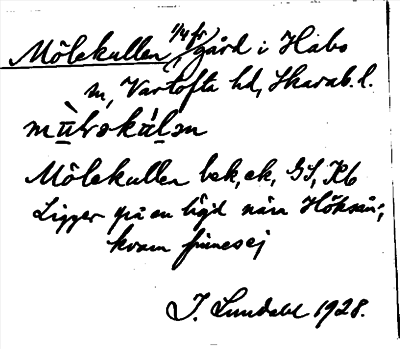 Mölekullen, 1/4 fr gård i Habo
sn, Vartofta hd, Skarab. l.
mùləkúlən
Mölekullen bek, ek, GS, Kb
Ligger på en höjd nära Hökaån;
kvarn finnes ej
J. Lundahl 1928.